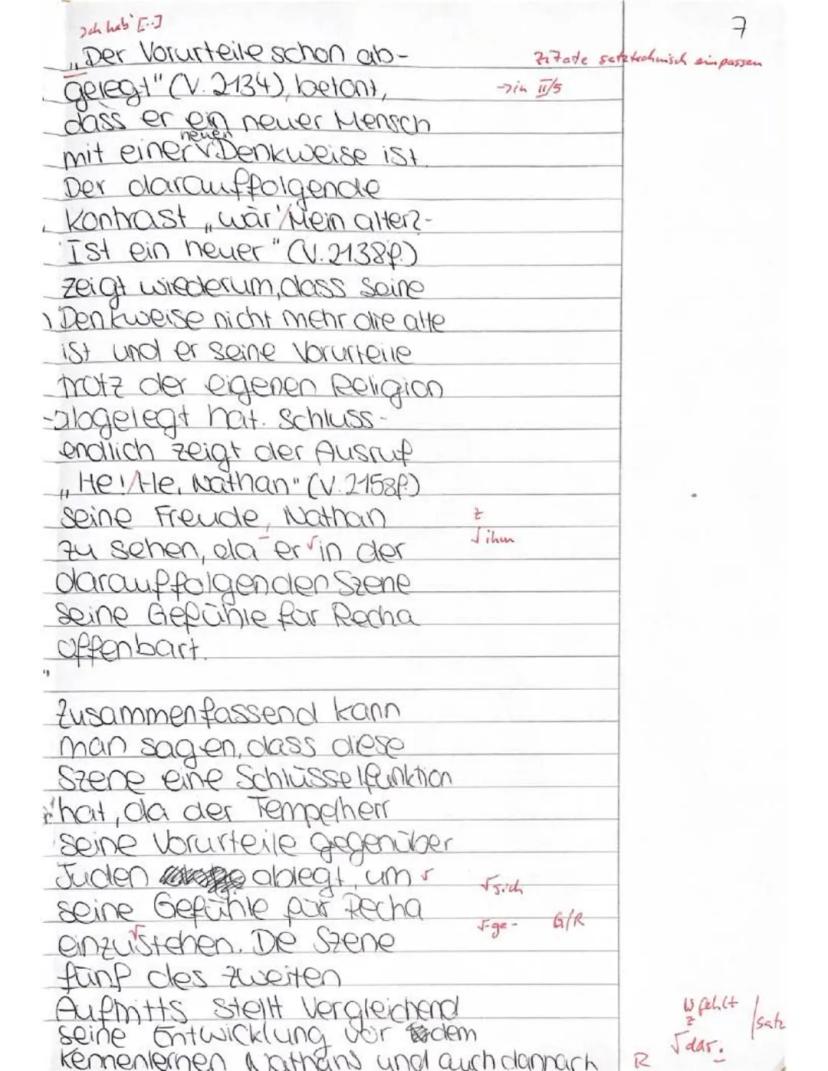 Ich hab' [..]
7
„Der Vorurteile schon ab-
Zitate satztechnisch einpassen
gelegt" (V. 2134), betont,
→ in II/5
dass er ein neuer Mensch
mit einer neuen Denkweise ist.
Der darauffolgende
Kontrast „wär'/Mein alter?-
Ist ein neuer" (V. 2138f.)
zeigt wiederum, dass seine
Denkweise nicht mehr die alte
ist und er seine Vorurteile
trotz der eigenen Religion
abgelegt hat. Schluss-
endlich zeigt der Ausruf
„He!/He, Nathan" (V. 2158f.)
seine Freude, Nathan
z
zu sehen, da er √ in der
√ ihm
darauffolgenden Szene
seine Gefühle für Recha
offenbart.
Zusammenfassend kann
man sagen, dass diese
Szene eine Schlüsselfunktion
hat, da der Tempelherr
seine Vorurteile gegenüber
Juden ablegt, um √
√ sich
seine Gefühle für Recha
√ -ge- G/R
einzustehen. De Szene
fünf des zweiten
Auftritts stellt Vergleichend
W fehlt
seine Entwicklung vor dem
z /Satz
√ dar.
Kennenlernen Nathans und auch dannach
R